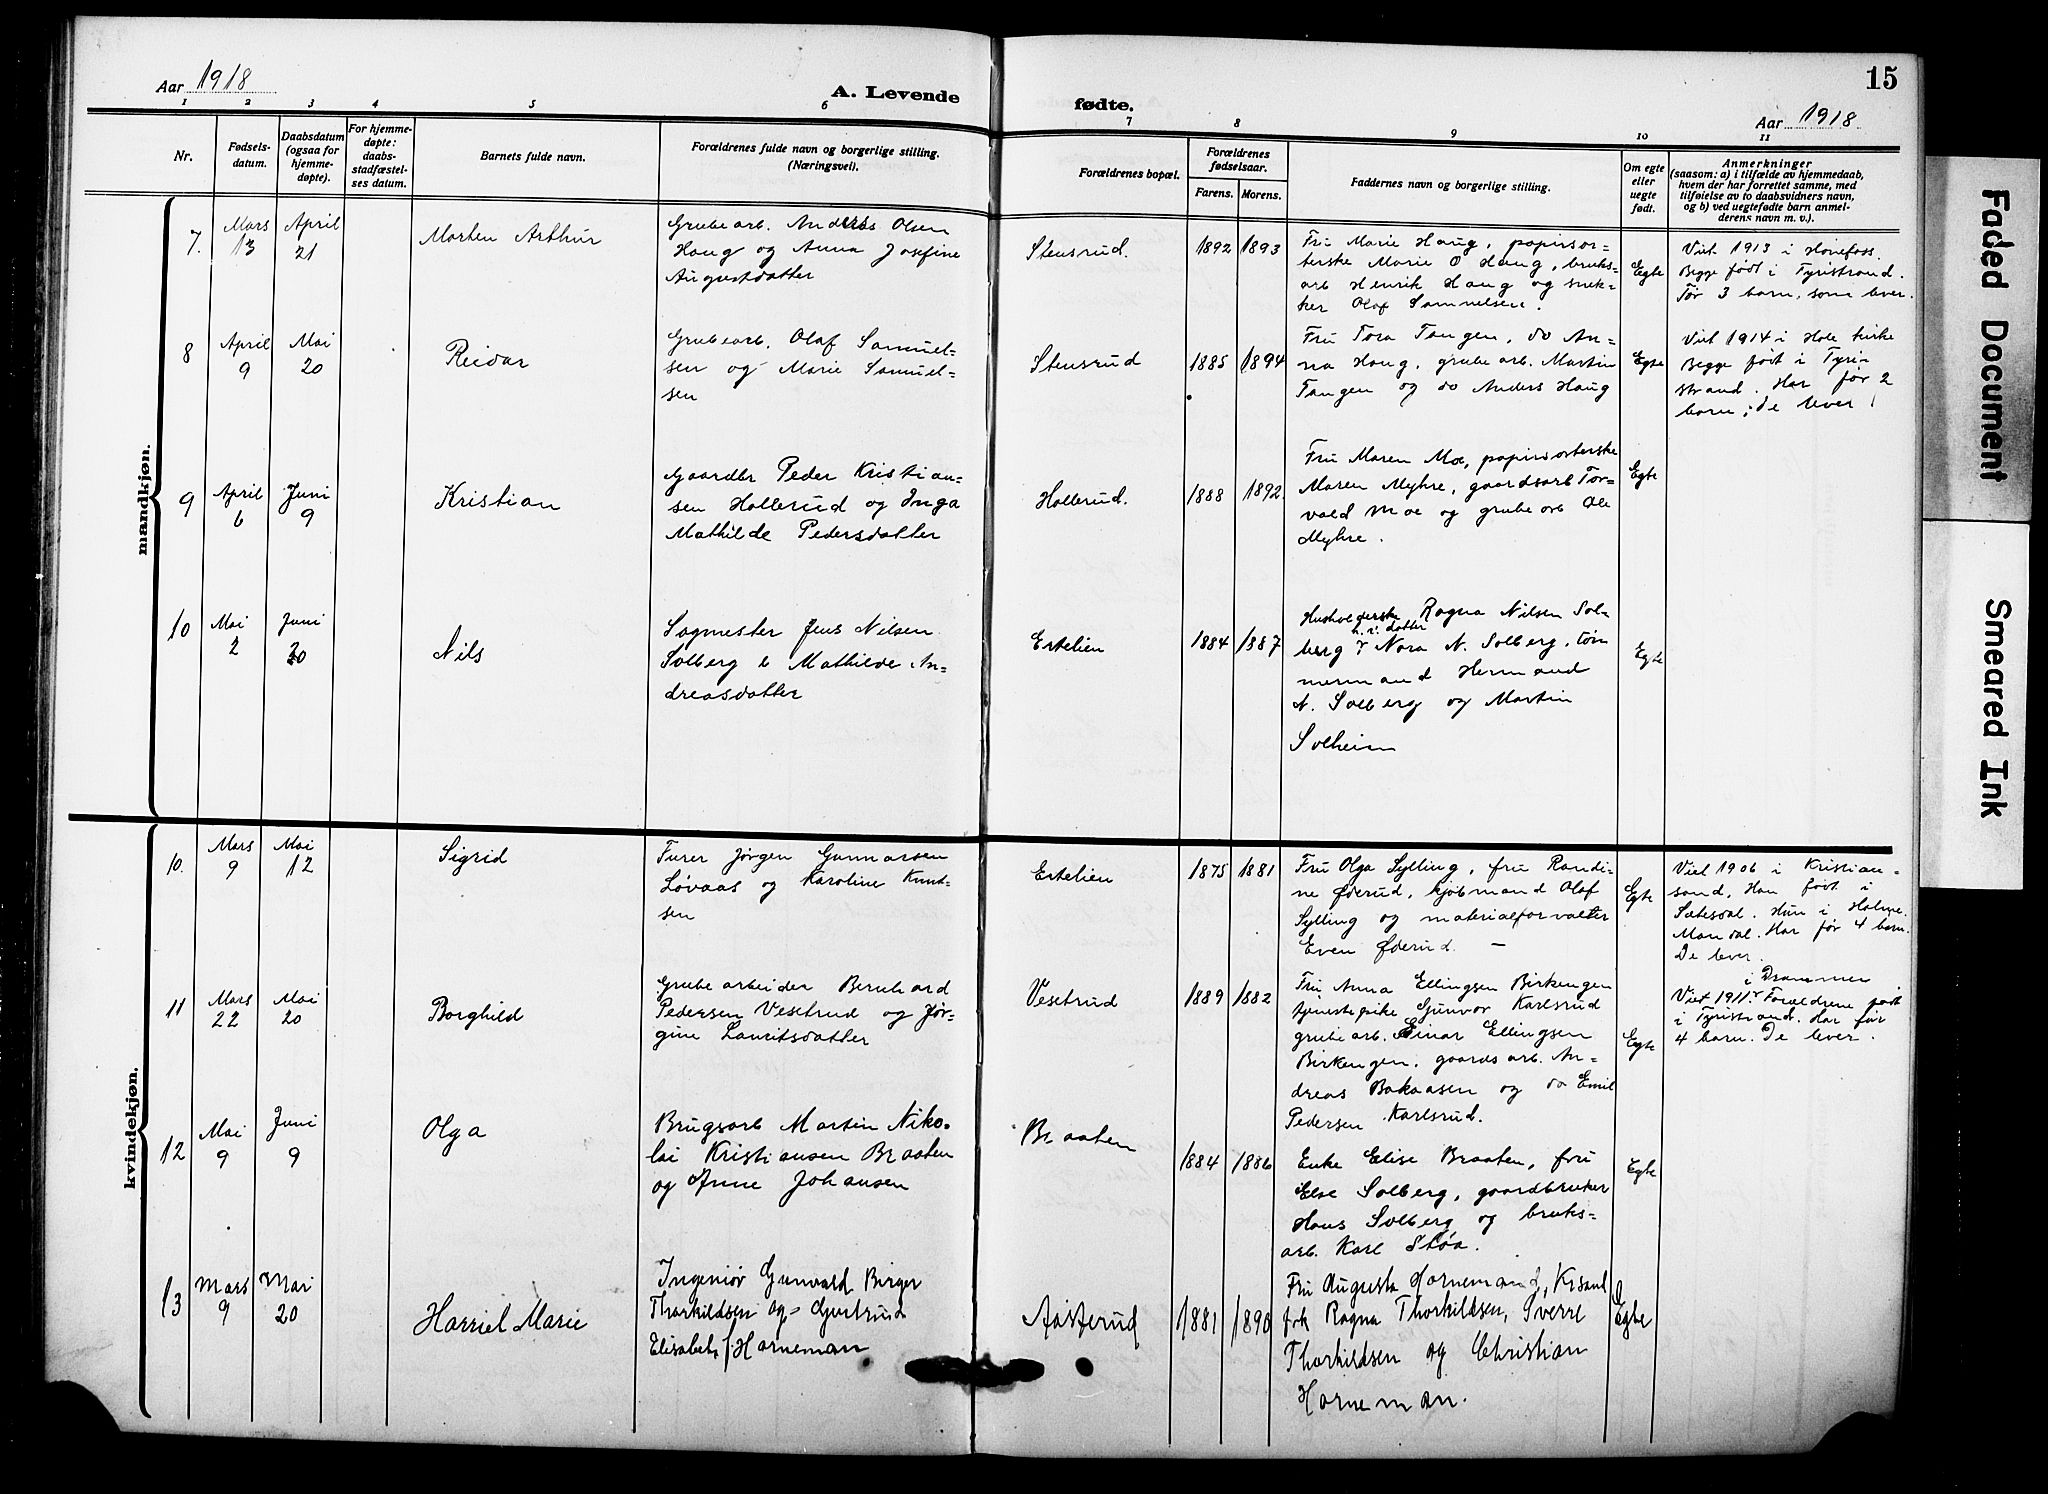 Aar 1918
A. Levende
fødte.
15
Aar 1918
1 2 3 4 5 6 7 8 9 10 11
Nr.
Fødsels-
datum.
Daabsdatum
(ogsaa for
hjemme-
døpte).
For hjemme-
døpte:
daabs-
stadfæstel-
ses datum.
Barnets fulde navn.
Forældrenes fulde navn og borgerlige stilling.
(Næringsvei).
Forældrenes bopæl.
Forældrenes
fødselsaar.
Farens. Morens.
Faddernes navn og borgerlige stilling.
Om egte
eller
uegte
født.
Anmerkninger
(saasom: a) i tilfælde av hjemmedaab,
hvem der har forrettet samme, med
tilføielse av to daabsvidners navn,
og b) ved uegtefødte barn anmel-
derens navn m. v.).
mandkjøn.
7.
Mars
13
April
21
Morten Arthur
Grubearb. Anders Olsen
Haug og Anna Josefine
Augustdatter
Stensrud.
1892 1893
Fru Marie Haug, papirsor-
terske Marie O Haug, bruks-
arb Henrik Haug og snek-
ker Olaf Samuelsen.
Egte
Viet 1913 i Hønefoss.
Begge født i Tyristrand.
Før 3 barn, som lever.
8
April
9
Mai
20
Reidar
Grubearb. Olaf Samuel-
sen og Marie Samuel-
sen
Stensrud
1885 1894
Fru Tora Tangen, do An-
na Haug, grubearb. Martin
Tangen og do Anders Haug
Egte
Viet 1914 i Hole kirke
Begge født i Tyri-
strand. Har før 2
barn; de lever
9
April
6
Juni
9
Kristian
Gaardbr Peder Kristian-
sen Hollerud og Inga
Mathilde Pedersdatter
Hollerud.
1888 1892
Fru Maren Moe, papirsorterske
Maren Myhre, gaardsarb Tor-
vald Moe og grubearb Ole
Myhre.
Egte
10
Mai
2
Juni
20
Nils
Sagmester Jens Nilsen
Solberg & Mathilde An-
dreasdatter
Ertelien
1884 1887
Husholderske Ragna Nilsen Sol-
berg Nora N. Solberg, tøm
mermand Hermand
N. Solberg og Martin
Solheim
Egte
kvindekjøn.
10.
Mars
9
Mai
12
Sigrid
Furer Jørgen Gunnarsen
Løvaas og Karoline Knut-
sen
Ertelien
1875 1881
Fru Olga Sylling, fru Randi-
ne Øderud, kjøbmand Olaf
Sylling og materialforvalter
Even Øderud. –
Egte
Viet 1906 i Kristian-
sand. Han født i
Sætesdal. Hun i Holme.
Mandal. Har før 4 barn.
De lever.
11
Mars
22
Mai
20
Borghild
Grubearbeider Bernhard
Pedersen Vesetrud og Jør-
gine Lauritsdatter
Vesetrud
1889 1882
Fru Anna Ellingsen Birkengen
tjenestepike Gunvor Karlsrud
grubearb. Einar Ellingsen
Birkengen, gaardsarb. An-
dreas Bakaasen og do Emil
Pedersen Karlsrud.
Egte
i Drammen
Viet 1911. Forældrene født
i Tyristrand. Har før
4 barn. De lever.
12
Mai
9
Juni
9
Olga
Brugsarb Martin Niko-
lai Kristiansen Braaten
og Anne Johansen
Braaten
1884 1886
Enke Elise Braaten, fru
Else Solberg, gaardbruker
Hans Solberg og bruks-
arb. Karl Støa.
Egte
13
Mars
9
Mai
20
Harriet Marie
Ingeniør Gunvald Birger
Thorkildsen og Gjertrud
Elisabeth f. Horneman
Aasterud
1881 1890
Fru Augusta Horneman, Krsand
frk Ragna Thorkildsen, Sverre
Thorkildsen og Christian
Horneman.
Egte
Faded Document
Smeared Ink